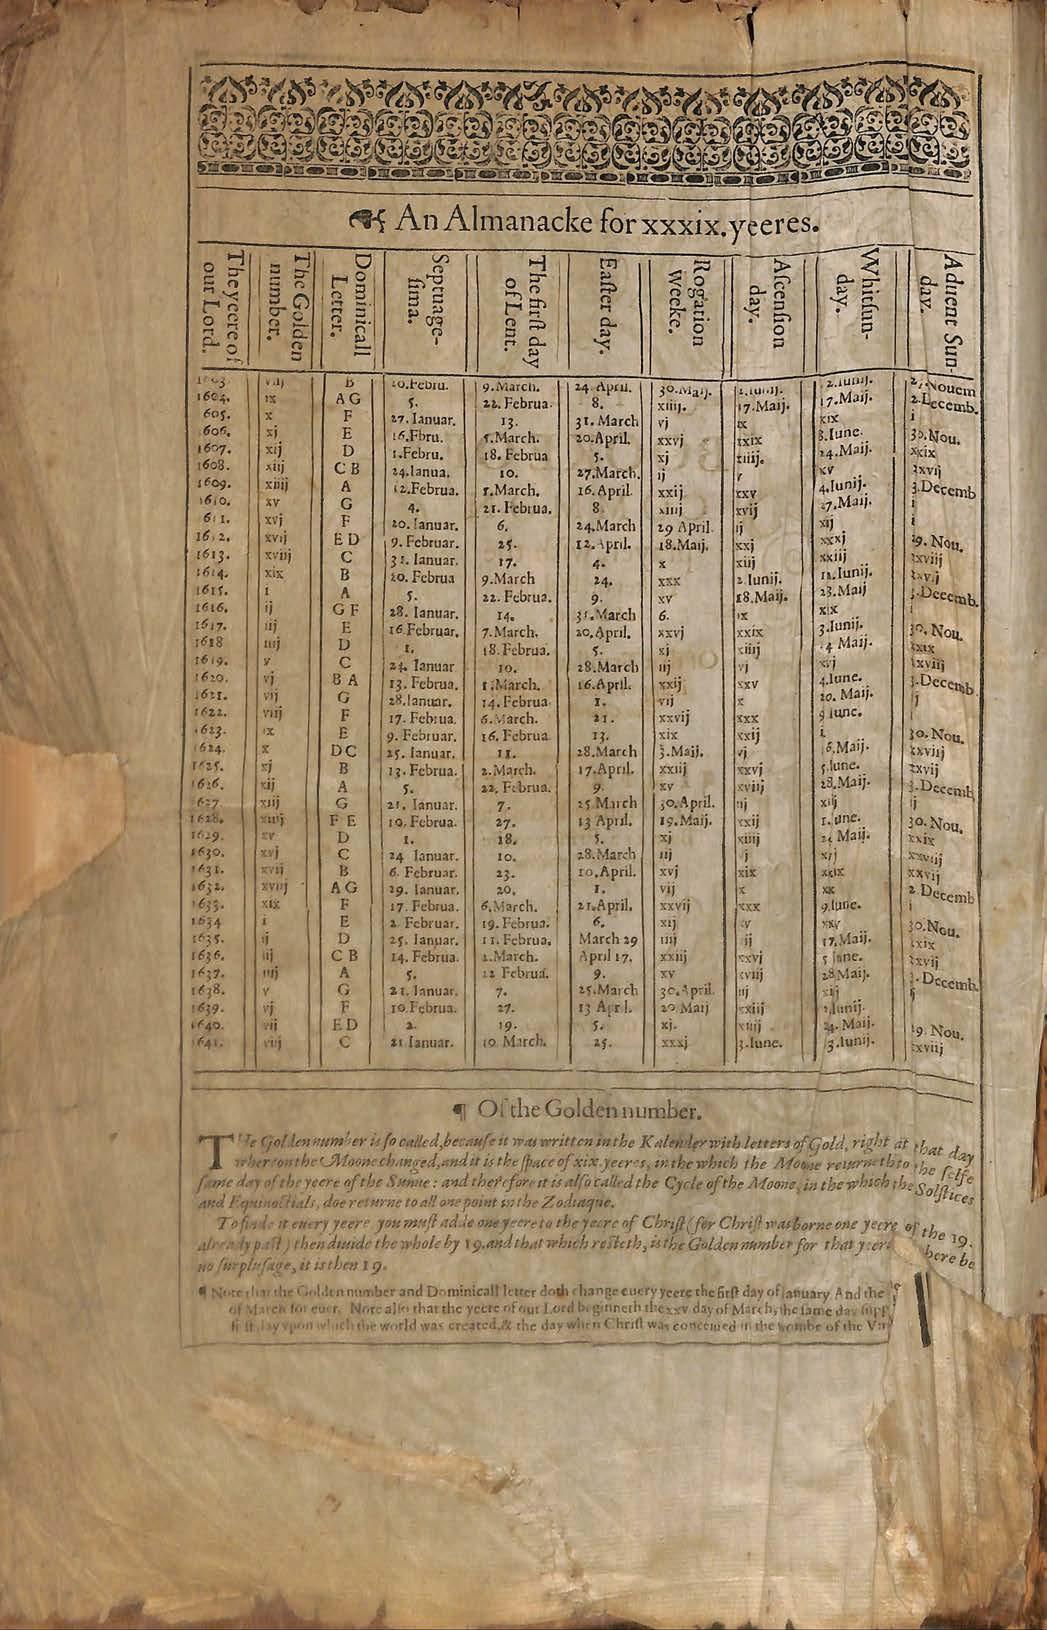 An Almanacke for xxxix. yeeres.
The yeere of our Lord. The Golden number. Dominicall Letter. Septuage-ſima. The firſt day of Lent. Eaſter day. Rogation weeke. Aſcenſion day. Whitſun-day. Aduent Sun-day.
1603 viij B 20.Febru. 9.March. 24 April. 30.Maij. 2.Iunij. 2.Iunij. 27.Nouem
1604. ix A G 5. 22. Februa. 8. xiiij. 17.Maij. 17.Maij. 2.Decemb.
605. x F 27. Ianuar. 13. 31. March vj ix xix i
606. xj E 16.Fbru. 5.March. 20.April. xxvj xxix 8.Iune. 30.Nou.
1607. xij D 1.Febru. 18. Februa 5. xj xiiij. 24.Maij. xxix
1608. xiij C B 24.Ianua. 10. 27.March. ij v xv xxvij
1609. xiiij A 12.Februa. 1.March. 16. April. xxij xxv 4.Iunij. 3.Decemb
1610. xv G 4. 21. Februa. 8 xiiij xvij 27.Maij. i
611. xvj F 20. Ianuar. 6. 24.March 29 April. ij xij i
1612. xvij E D 9. Februar. 25. 12. April. 18.Maij. xxj xxxj 29. Nou.
1613. xviij C 31. Ianuar. 17. 4. x xiij xxiij xxviij
1614. xix B 20. Februa 9.March 24. xxx 2.Iunij. 12.Iunij. xxvij
1615. i A 5. 22. Februa. 9. xv 18.Maij. 28.Maij 3.Decemb.
1616. ij G F 28. Ianuar. 14. 31.March 6. ix xix i
1617. iij E 16 Februar. 7.March. 20.April. xxvj xxix 3.Iunij. 30. Nou.
1618 iiij D 1. 18.Februa. 5. xj xiiij 24 Maij. xxix
1619. v C 24. Ianuar 10. 28.March iij vj xvj xxviij
1620. vj B A 13. Februa. 1.March. 16.April. xxij xxv 4.Iune. 3.Decemb.
1621. vij G 28.Ianuar. 14.Februa. 1. vij x 20. Maij.
1622. viij F 17. Februa. 6.March. 21. xxvij xxx 9 Iune. i
1623. ix E 9. Februar. 16. Februa 13. xix xxij i. 30. Nou.
1624. x D C 25. Ianuar. 11. 28.March 3.Maij. vj 16.Maij. xxviij
1625. xj B 13. Februa. 2.March. 17.April. xxiij xxvj 5.Iune. xxvij
1626. xij A 5. 22. Februa. 9. xv xviij 28.Maij. 3.Decemb
627. xiij G 21. Ianuar. 7. 25 March 30.April. iij xiij ij
1628. xiiij F E 10. Februa. 27. 13 April. 19.Maij. xxij 1.Iune. 30. Nou.
1629. xv D 1. 18. 5. xj xiiij 24 Maij. xxix
1630. xvj C 24 Ianuar. 10. 28.March iij vj xvj xxviij
1631. xvij B 6. Februar. 23. 10.April. xvj xix xxix xxvij
1632. xviij A G 29. Ianuar. 20. 1. vij x xx 2 Decemb
1633. xix F 17. Februa. 6.March. 21.April. xxvij xxx 9.Iune. i
1634 i E 2 Februar. 19. Februa. 6. xij xv xxv 30.Nou.
1635. ij D 25. Ianuar. 11. Februa. March 29 iiij ij 17.Maij. xxix
1636. iij C B 14. Februa. 2.March. April 17. xxiij xxvj 5 Iune. xxvij
1637. iiij A 5. 22 Februa. 9. xv xviij 28 Maij. 3.Decemb.
1638. v G 21. Ianuar. 7. 25.March 30.April. iij xij
1639. vj F 10.Februa. 27. 13 April. 20 Maij xxiij 2.Iunij. i
1640. vij E D 2. 19. 5. xj. xiiij 24. Maij. 29. Nou.
1641. viij C 21 Ianuar. 10 March. 25. xxxj 3.Iune. 13.Iunij. xxviij
¶ Of the Golden number.
THe Golden number is ſo called, becauſe it was written in the Kalender with letters of Gold, right at that day
whereon the Moone changed, and it is the ſpace of xix. yeeres, in the which the Moone returneth to the ſelfe
ſame day of the yeere of the Sunne: and therefore it is alſo called the Cycle of the Moone, in the which the Solſtices
and Equinoctials, doe returne to all one point in the Zodiaque.
To finde it euery yeere, you muſt adde one yeere to the yeere of Chriſt (for Chriſt was borne one yeere of the 19.
already paſt) then diuide the whole by 19. and that which reſteth, is the Golden number for that yeere here be
no ſurpluſage, it is then 19.
¶ Note that the Golden number and Dominicall letter doth change euery yeere the firſt day of Ianuary. And the
of March for euer. Note alſo that the yeere of our Lord beginneth the xxv day of March, the ſame day ſupp
firſt day vpon which the world was created, & the day when Chriſt was conceiued in the wombe of the Vir